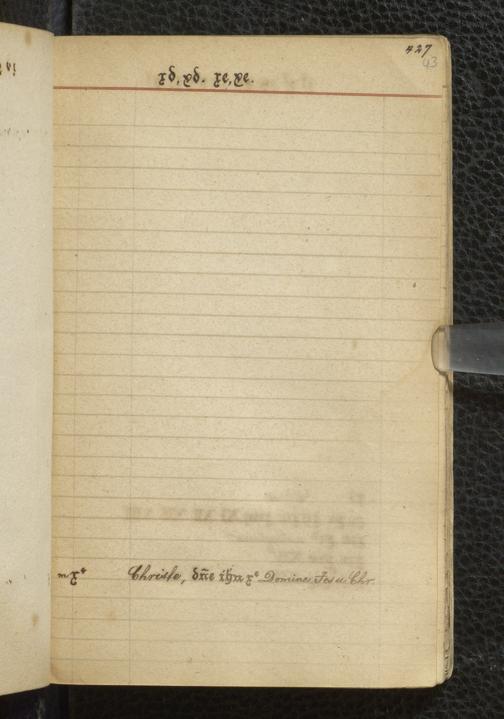 427
43
xd, xd. xe, xe.
m xᵉ Christe, dn̄e ihu xᵉ Domine Jesu Chr.